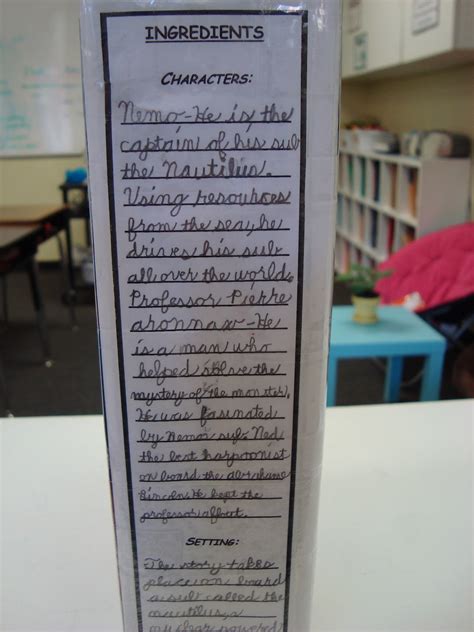 INGREDIENTS
CHARACTERS:
Nemo-He is the
captain of his sub
the Nautilus.
Using resources
from the sea, he
drives his sub
all over the world.
Professor Pierre
aronnax-He
is a man who
helped solve the
mystery of the monster.
He was fasinated
by Nemo sub. Ned
the best harpoonist
on board the
Lincoln. He kept the
professor
SETTING:
The story takes
place on board
a sub called the
nautilus, a
powered